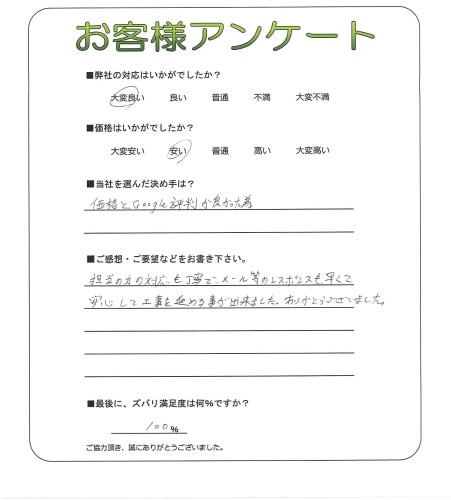 お客様アンケート
■弊社の対応はいかがでしたか?
大変良い 良い 普通 不満 大変不満
■価格はいかがですか?
大変安い 安い 普通 高い 大変高い
■当社を選んだ決め手は?
価格とGoogle評判が良かった為
■ご感想・ご要望などをお書き下さい。
担当の方の対応も丁寧で、メール等のレスポンスも早くて
安心して工事を進める事が出来ました。ありがとうございました。
■最後に、ズバリ満足度は何%ですか?
100%
ご協力頂き、誠にありがとうございました。